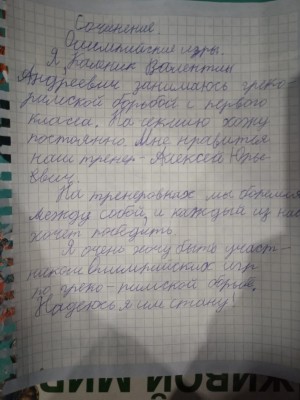 Сочинение.
Олимпийские игры.
Я, Валентин
Андреевич занимаюсь греко-
римской борьбой с первого
класса. На секцию хожу
постоянно. Мне нравится
наш тренер - Алексей Юрь
евич.
На тренеровках мы боремся
между собой, и каждый из нас
хочет победить.
Я очень хочу быть участ-
ником олимпийских игр
по греко-римской борьбе.
Надеюсь я им стану!
ЖИВОЙ МИР